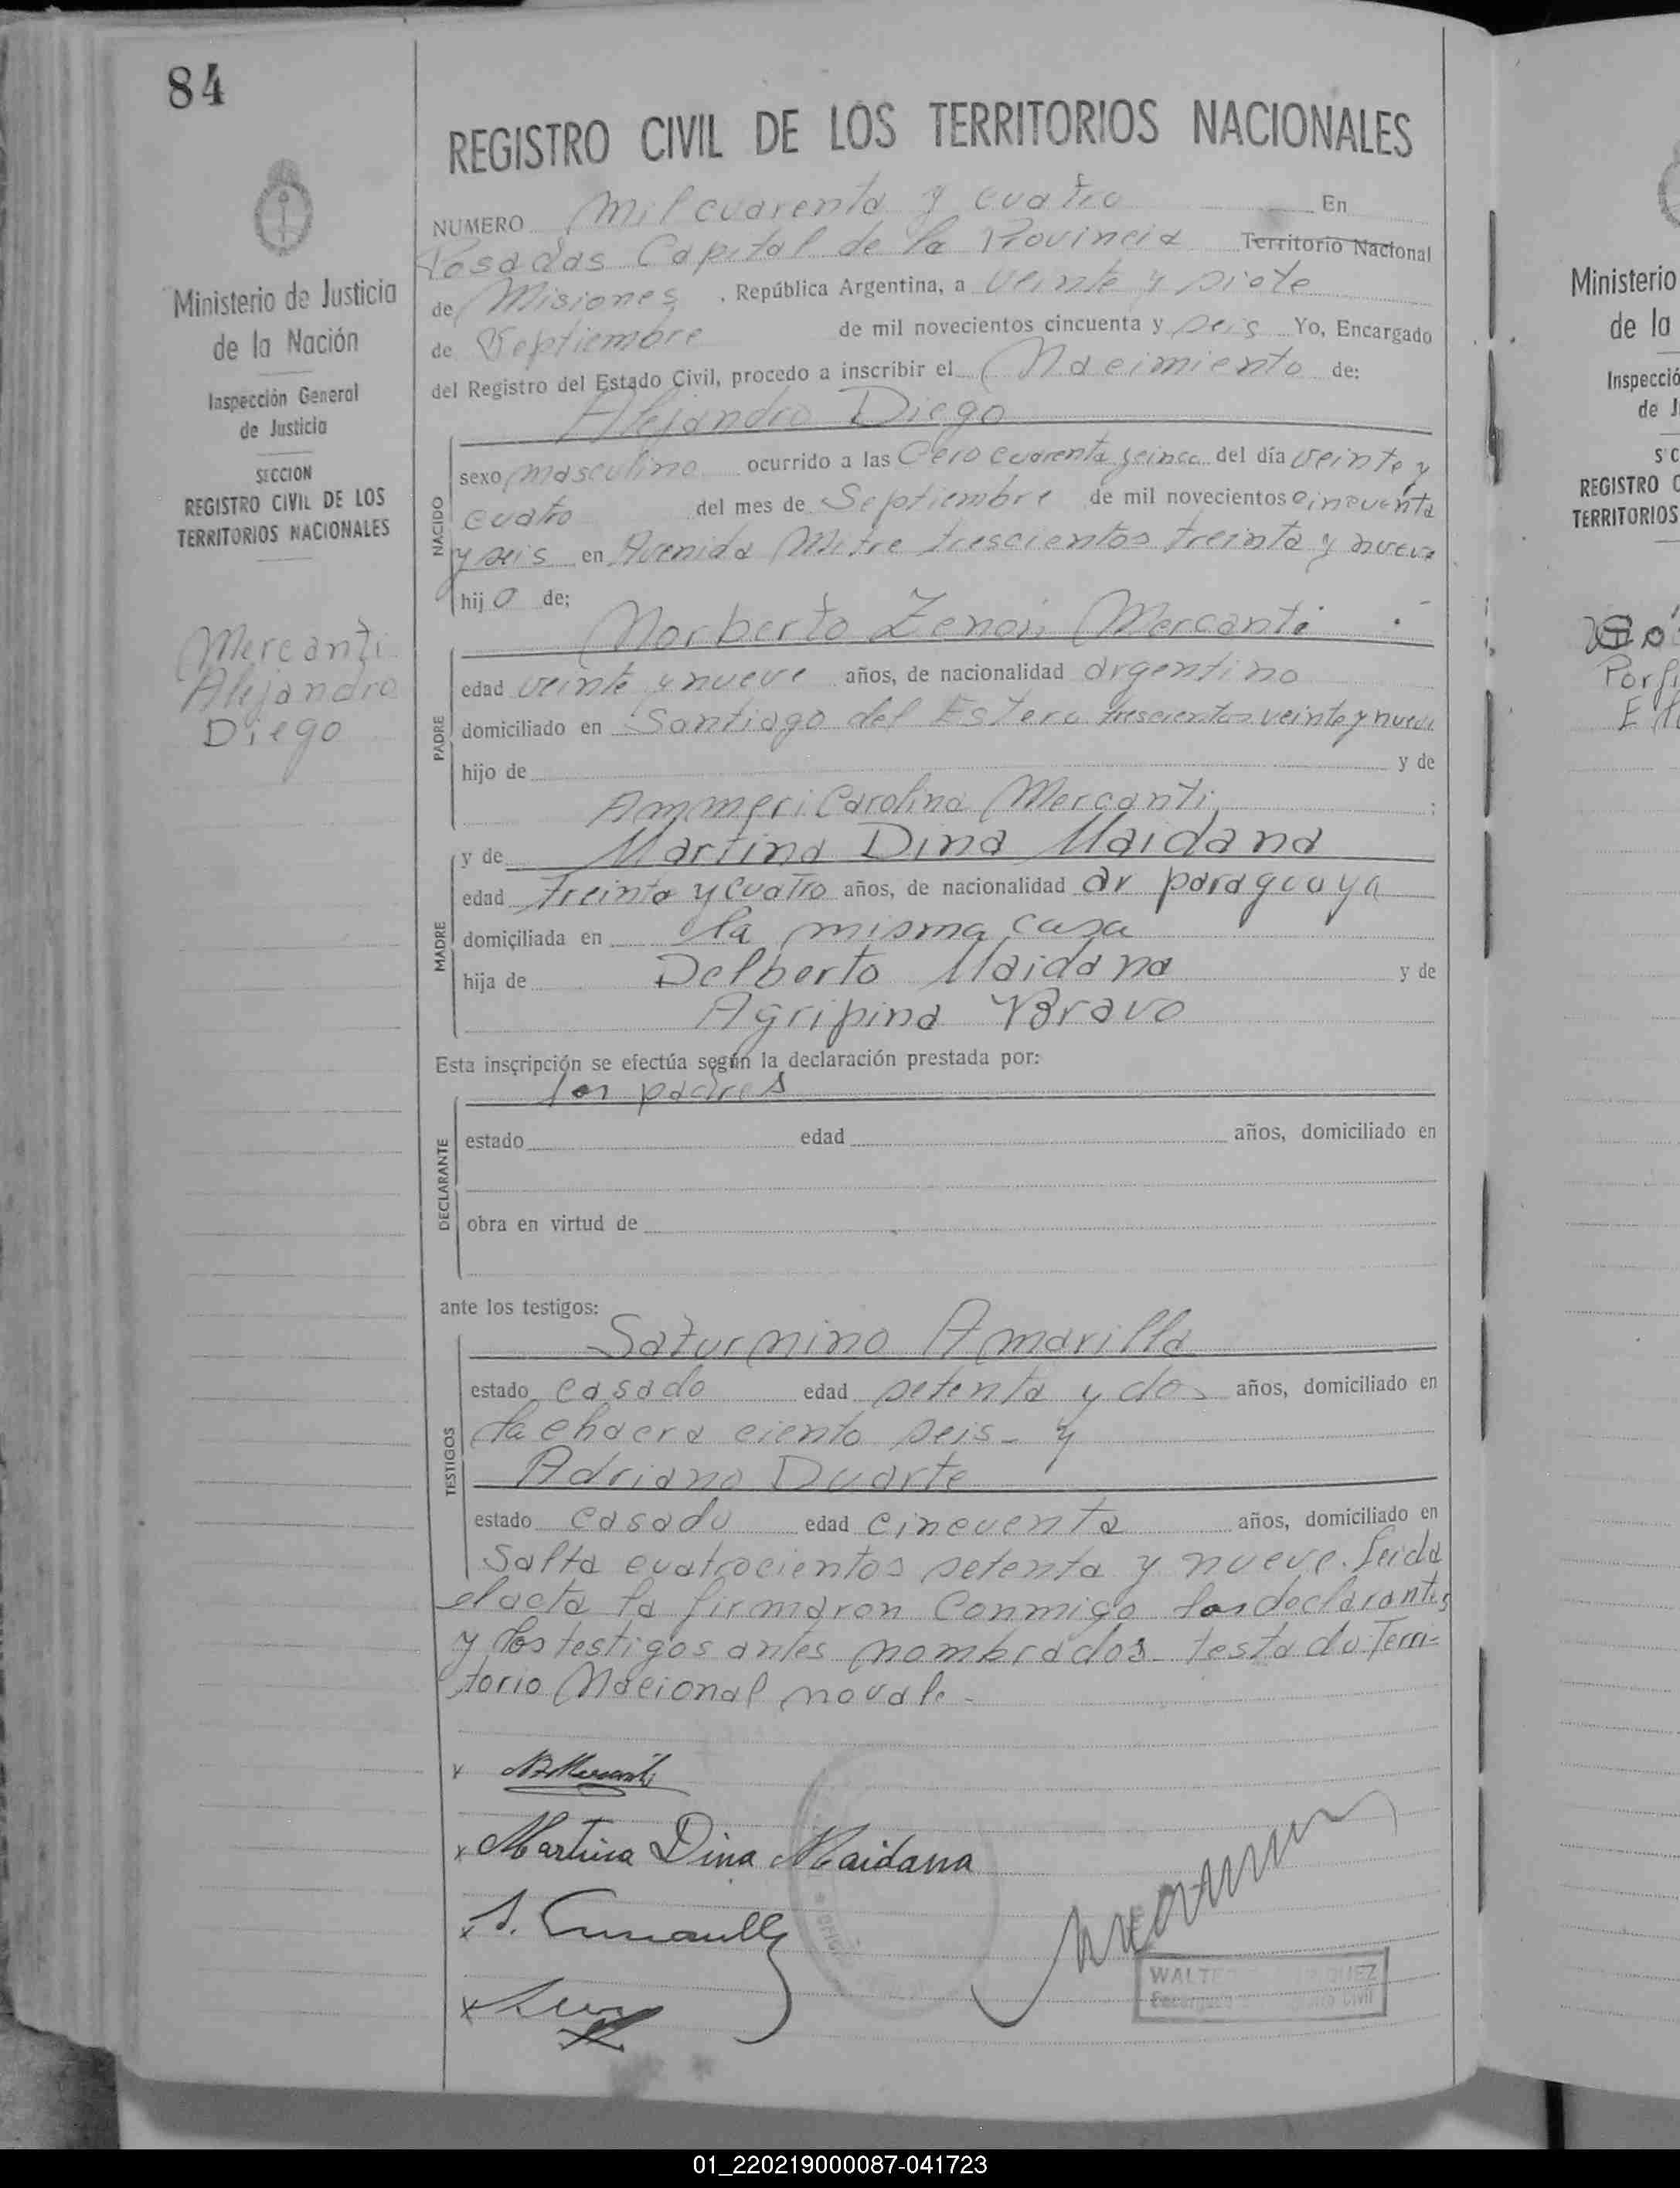 84
REGISTRO CIVIL DE LOS TERRITORIOS NACIONALES
NUMERO Mil cuarenta y cuatro En
Posadas Capital de la Provincia Territorio Nacional
de Misiones, República Argentina, a veinte y siete
de Septiembre de mil novecientos cincuenta y seis Yo, Encargado
del Registro del Estado Civil, procedo a inscribir el Nacimiento de:
Alejandro Diego
Ministerio de Justicia
de la Nación
Inspección General
de Justicia
SECCION
REGISTRO CIVIL DE LOS
TERRITORIOS NACIONALES
Mercanti
Alejandro
Diego
NACIDO
sexo masculino ocurrido a las Cero cuarenta y cinco del día veinte y
cuatro del mes de Septiembre de mil novecientos cincuenta
y seis en Avenida Mitre trescientos treinta y nueve
hijo de;
Norberto Zenon Mercanti
PADRE
edad veinte y nueve años, de nacionalidad argentino
domiciliado en Santiago del Estero trescientos veinte y nueve
hijo de y de
Carolina Mercanti;
MADRE
y de Martina Dina Maidana
edad treinta y cuatro años, de nacionalidad ar paraguaya
domiciliada en la misma casa
hija de Delberto Maidana y de
Agripina Bravo
Esta inscripción se efectúa según la declaración prestada por:
los padres
DECLARANTE
estado edad años, domiciliado en
obra en virtud de
ante los testigos:
TESTIGOS
Saturnino Amarilla
estado casado edad setenta y dos años, domiciliado en
la chacra ciento seis - y
Adriano Duarte
estado casado edad cincuenta años, domiciliado en
Salta cuatrocientos setenta y nueve. Leida
el acta la firmaron conmigo los declarantes
y los testigos antes nombrados - testado: Terri=
torio Nacional no vale -
x
x Martina Dina Maidana
x
x
WALTE
Ministerio
de la
Inspecció
de J
REGISTRO C
TERRITORIOS
01_220219000087-041723